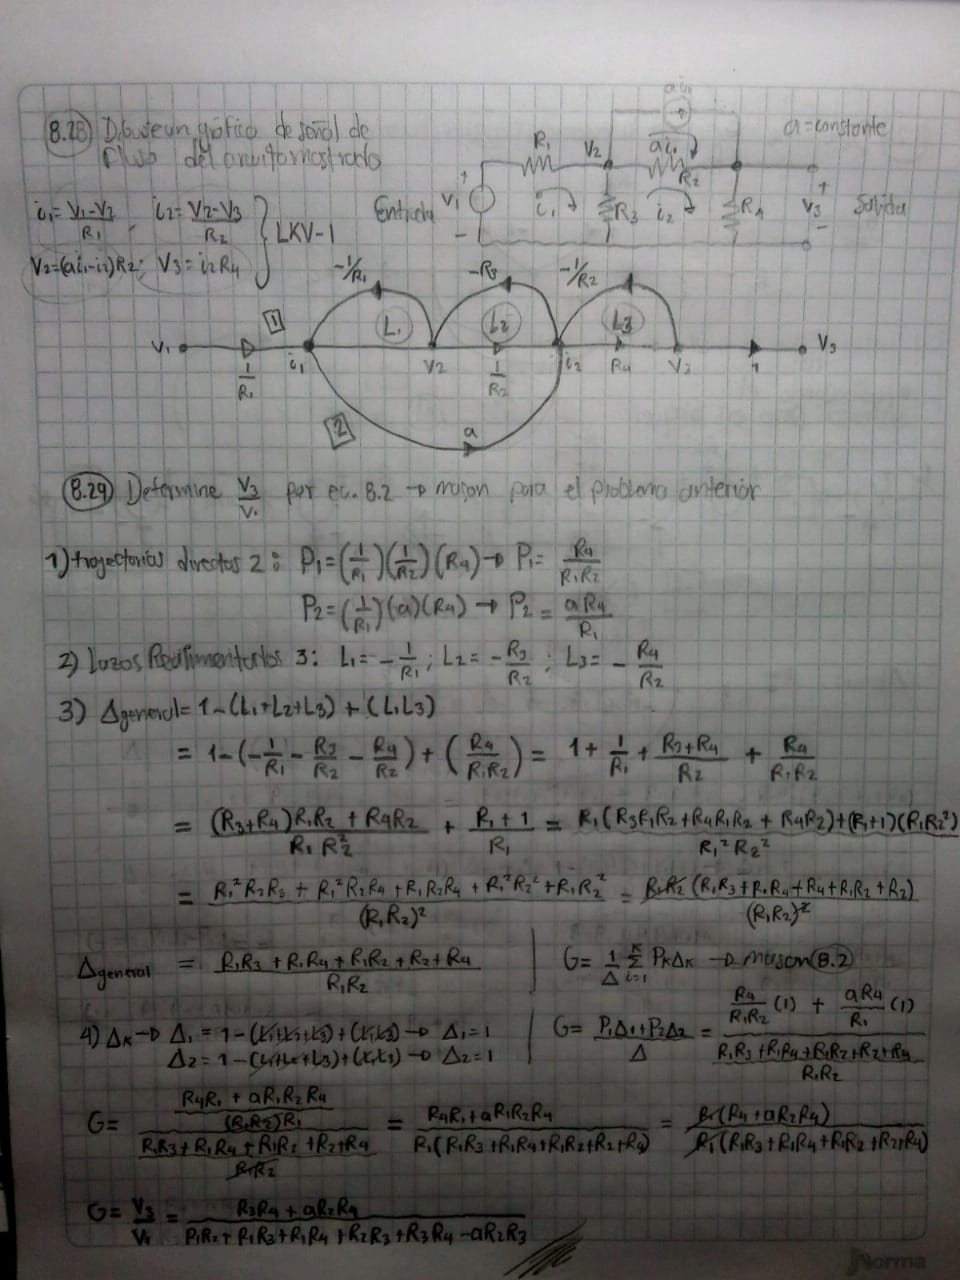 8.28) Dibuje un gráfico de señal de
Flujo del circuito mostrado
i₁ = (V₁-V₂)/R₁, i₂ = (V₂-V₃)/R₂ } LKV-1
V₂=(ai₁-i₂)R₂; V₃ = i₂R₄
Entrada V₁ + - R₁ V₂ ai₁ ai₁ R₂ i₁ R₃ i₂ R₄ + V₃ - Salida
a=constante
-1/R₁ -R₃ -1/R₂
1 L₁ L₂ L₃
V₁ 1/R₁ i₁ V₂ 1/R₂ i₂ R₄ V₃ 1 V₃
2 a
8.29) Determine V₃/V₁ por ec. 8.2 → mason para el problema anterior
1) trayectorias directas 2: P₁=(1/R₁)(1/R₂)(R₄) → P₁= R₄/R₁R₂
P₂=(1/R₁)(a)(R₄) → P₂ = aR₄/R₁
2) Lazos Realimentados 3: L₁= -1/R₁; L₂= -R₃/R₂; L₃= -R₄/R₂
3) Δgeneral= 1-(L₁+L₂+L₃)+(L₁L₃)
= 1-(-1/R₁ - R₃/R₂ - R₄/R₂)+(R₄/R₁R₂) = 1 + 1/R₁ + (R₃+R₄)/R₂ + R₄/R₁R₂
= ((R₃+R₄)R₁R₂ + R₄R₂)/R₁R₂² + (R₁+1)/R₁ = (R₁(R₃R₁R₂+R₄R₁R₂ + R₄R₂)+(R₁+1)(R₁R₂²))/R₁²R₂²
= (R₁²R₂R₃ + R₁²R₂R₄ + R₁R₂R₄ + R₁²R₂² + R₁R₂²)/(R₁R₂)² = R₁R₂(R₁R₃+R₁R₄+R₄+R₁R₂+R₂)/(R₁R₂)²
Δgeneral = (R₁R₃+R₁R₄+R₁R₂+R₂+R₄)/R₁R₂
G= 1/Δ Σ i=1 K PKΔK → mason 8.2
4) ΔK → Δ₁ = 1-(L₁+L₂+L₃)+(L₁L₃) → Δ₁=1
Δ₂ = 1-(L₁+L₂+L₃)+(L₁L₃) → Δ₂=1
G= (P₁Δ₁+P₂Δ₂)/Δ = (R₄/R₁R₂ (1) + aR₄/R₁ (1))/((R₁R₃+R₁R₄+R₁R₂+R₂+R₄)/R₁R₂)
G= ((R₄R₁ + aR₁R₂R₄)/(R₁R₂)R₁)/((R₁R₃+R₁R₄+R₁R₂+R₂+R₄)/R₁R₂) = (R₄R₁+aR₁R₂R₄)/(R₁(R₁R₃+R₁R₄+R₁R₂+R₂+R₄)) = R₁(R₄+aR₂R₄)/(R₁(R₁R₃+R₁R₄+R₁R₂+R₂+R₄))
G= V₃/V₁ = (R₃R₄+aR₂R₄)/(R₁R₂+R₁R₃+R₁R₄+R₂R₃+R₃R₄-aR₂R₃)
Norma